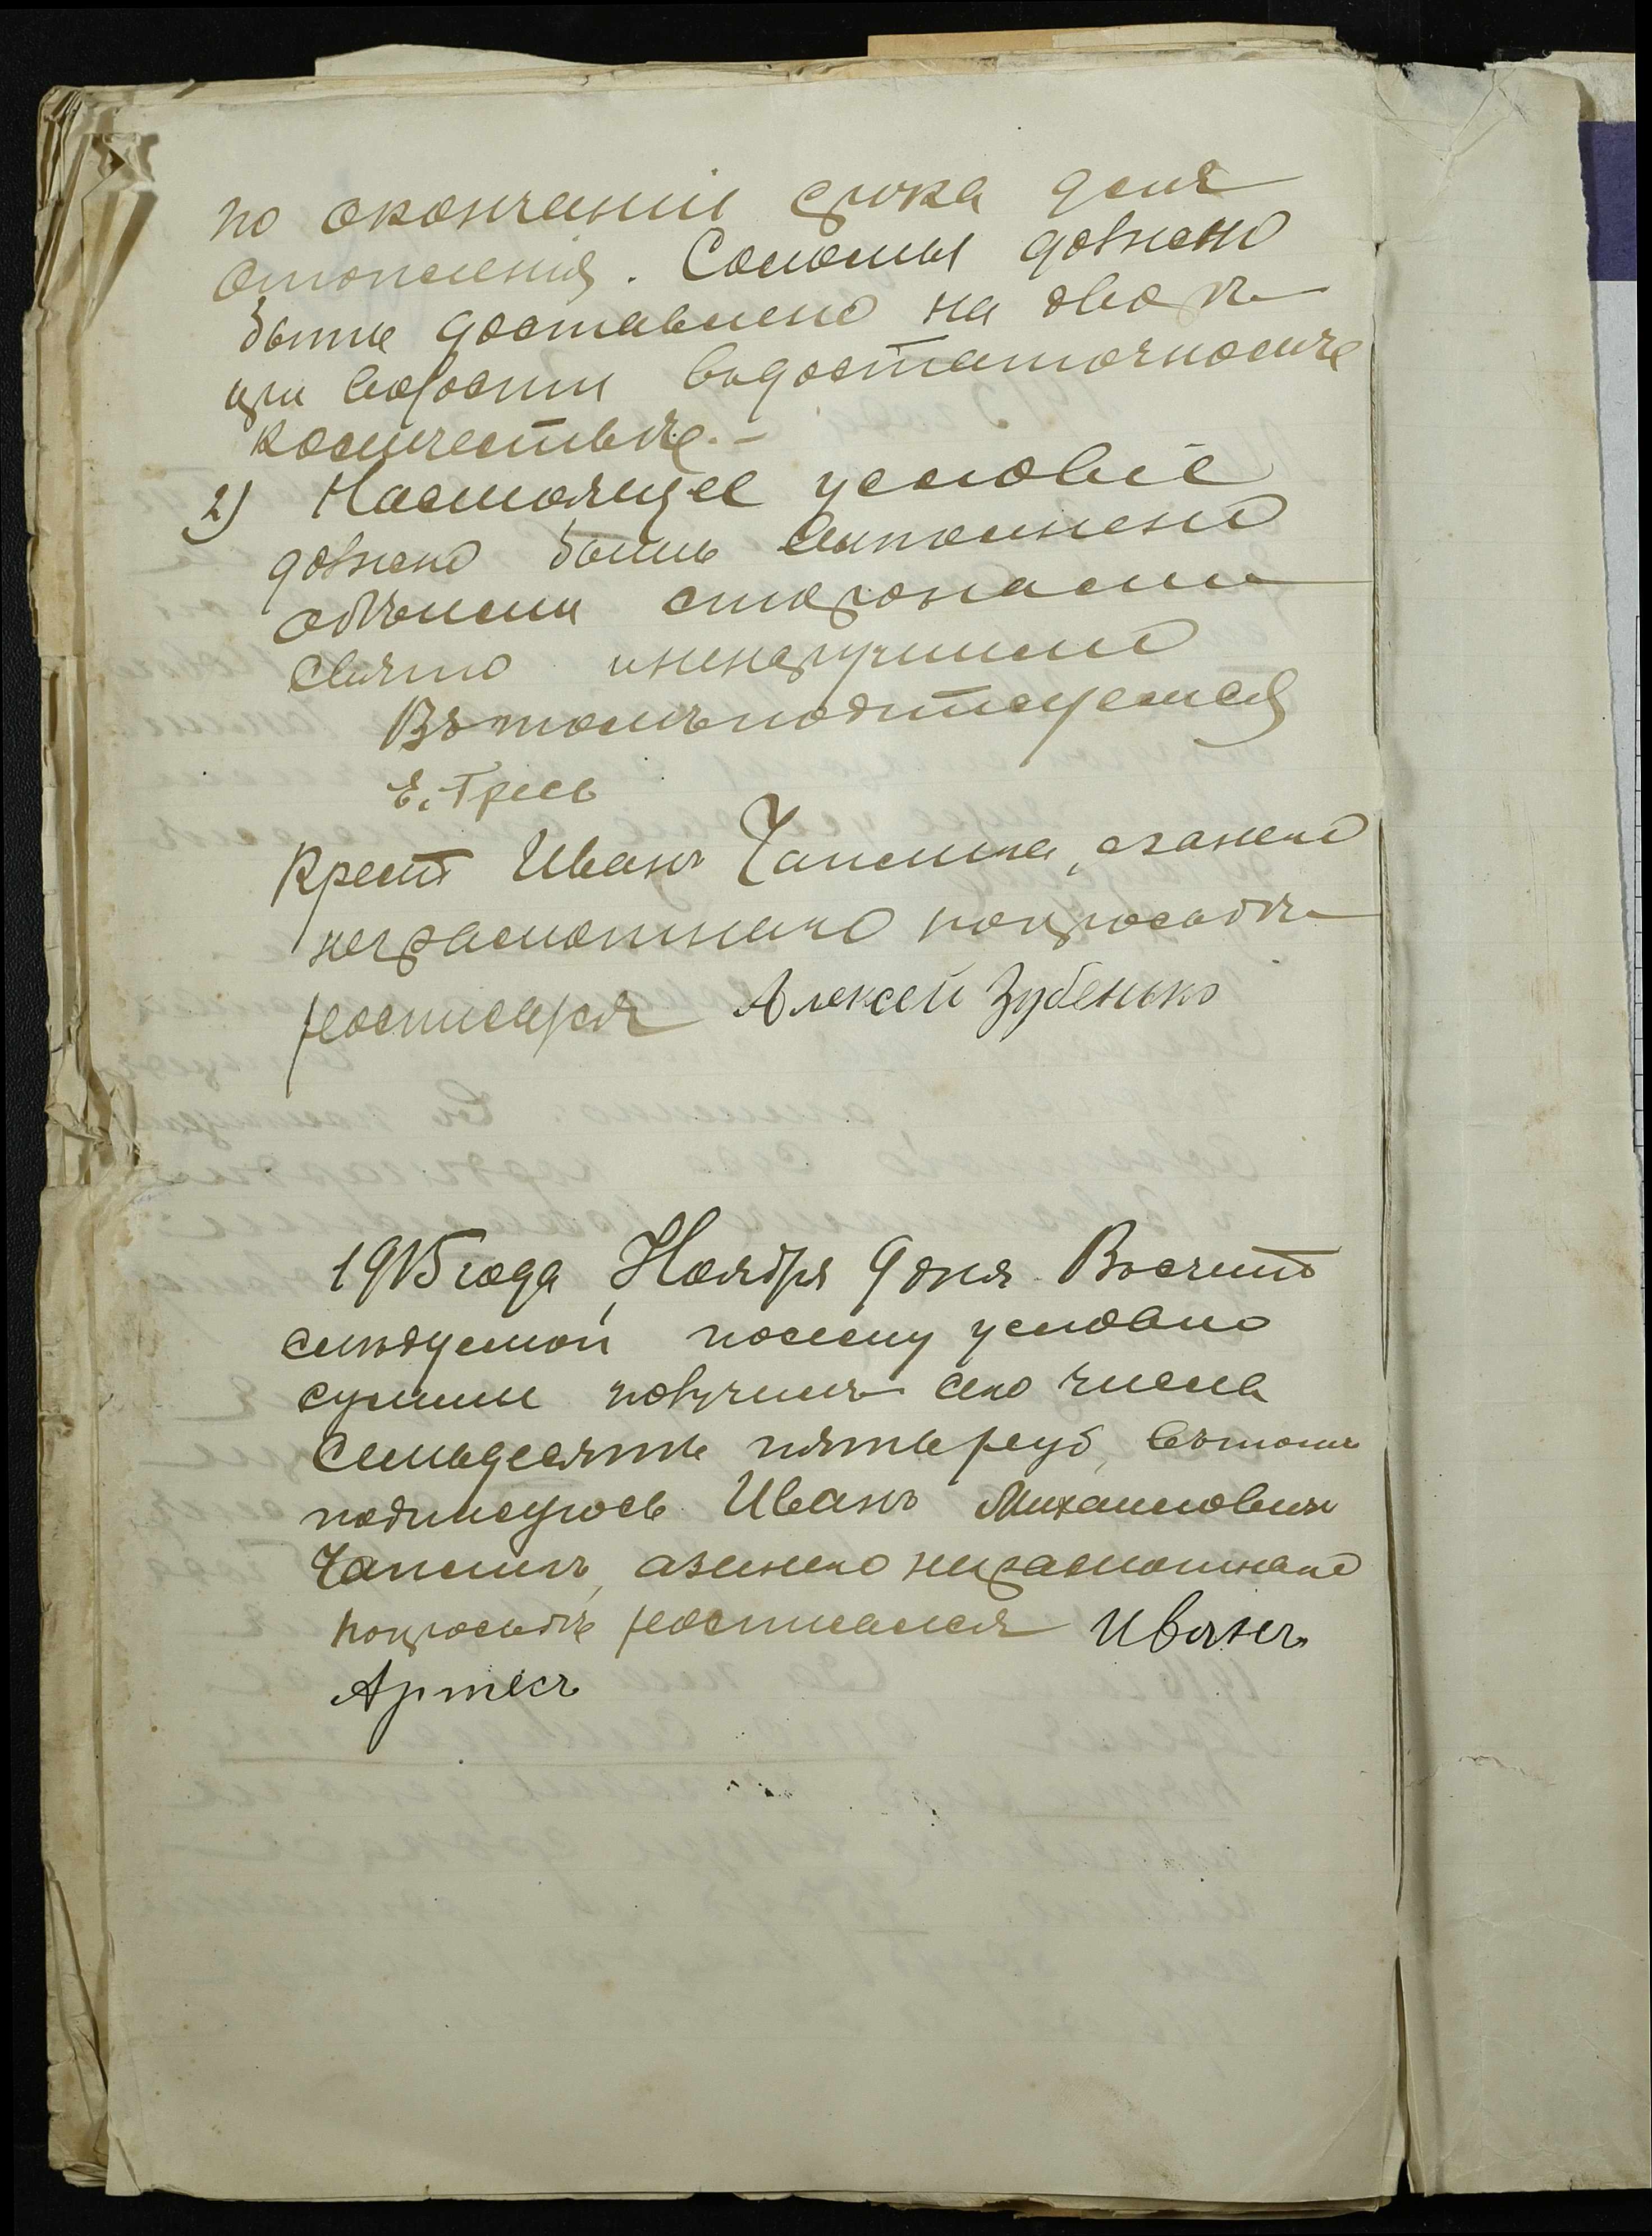 по окончаніи срока для
отопленія. Соломы должно
быть доставлено на дворъ
при волости в достаточномъ
количествѣ.–
2) Настоящее условіе
должно быть выполнено
обѣими сторонами
свято и ненарушимо
Въ томъ подписуемся
Е. Гресь
Крест Иванъ Чапсика, а за него
неграмотнаго по просьбѣ
росписался Алексей Зубенько
1915 года Ноября 9 дня. Въ счетъ
следуемой по сему условію
суммы получилъ сего числа
семьдесятъ пять руб, въ томъ
подписуюсь Иванъ Михайловичъ
Чапсикъ, а за него неграмотнаго
по просьбѣ росписался Иванъ
Артесъ